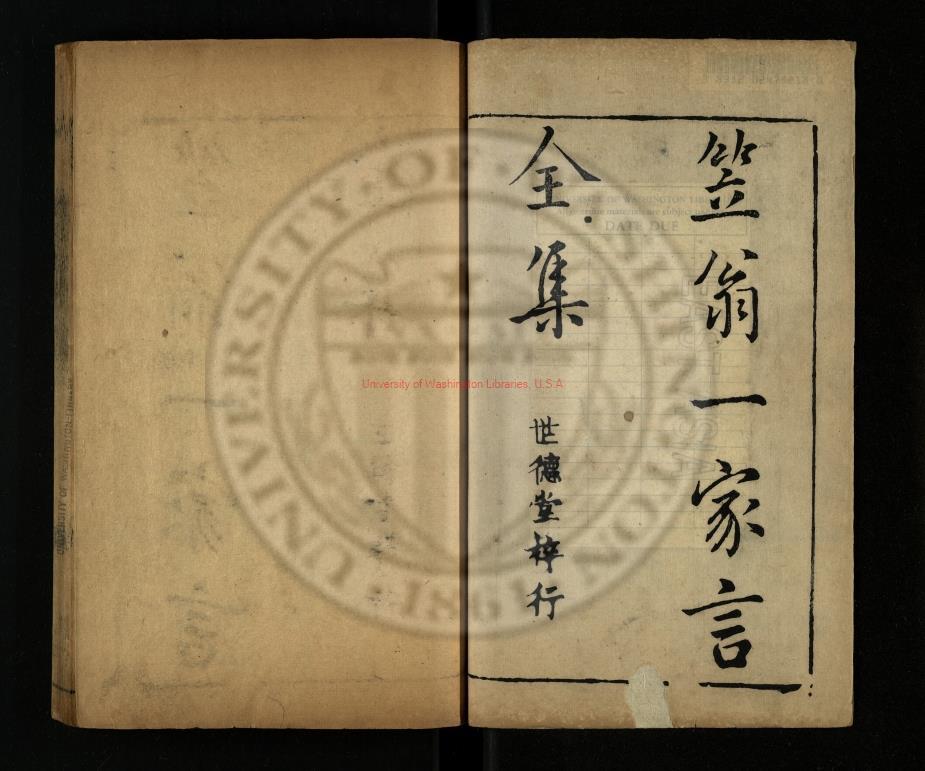 笠翁一家言
全集
世德堂梓行
University of Washington Libraries, U.S.A
UNIVERSITY · OF · WASHINGTON
· 1861 ·
DATE DUE